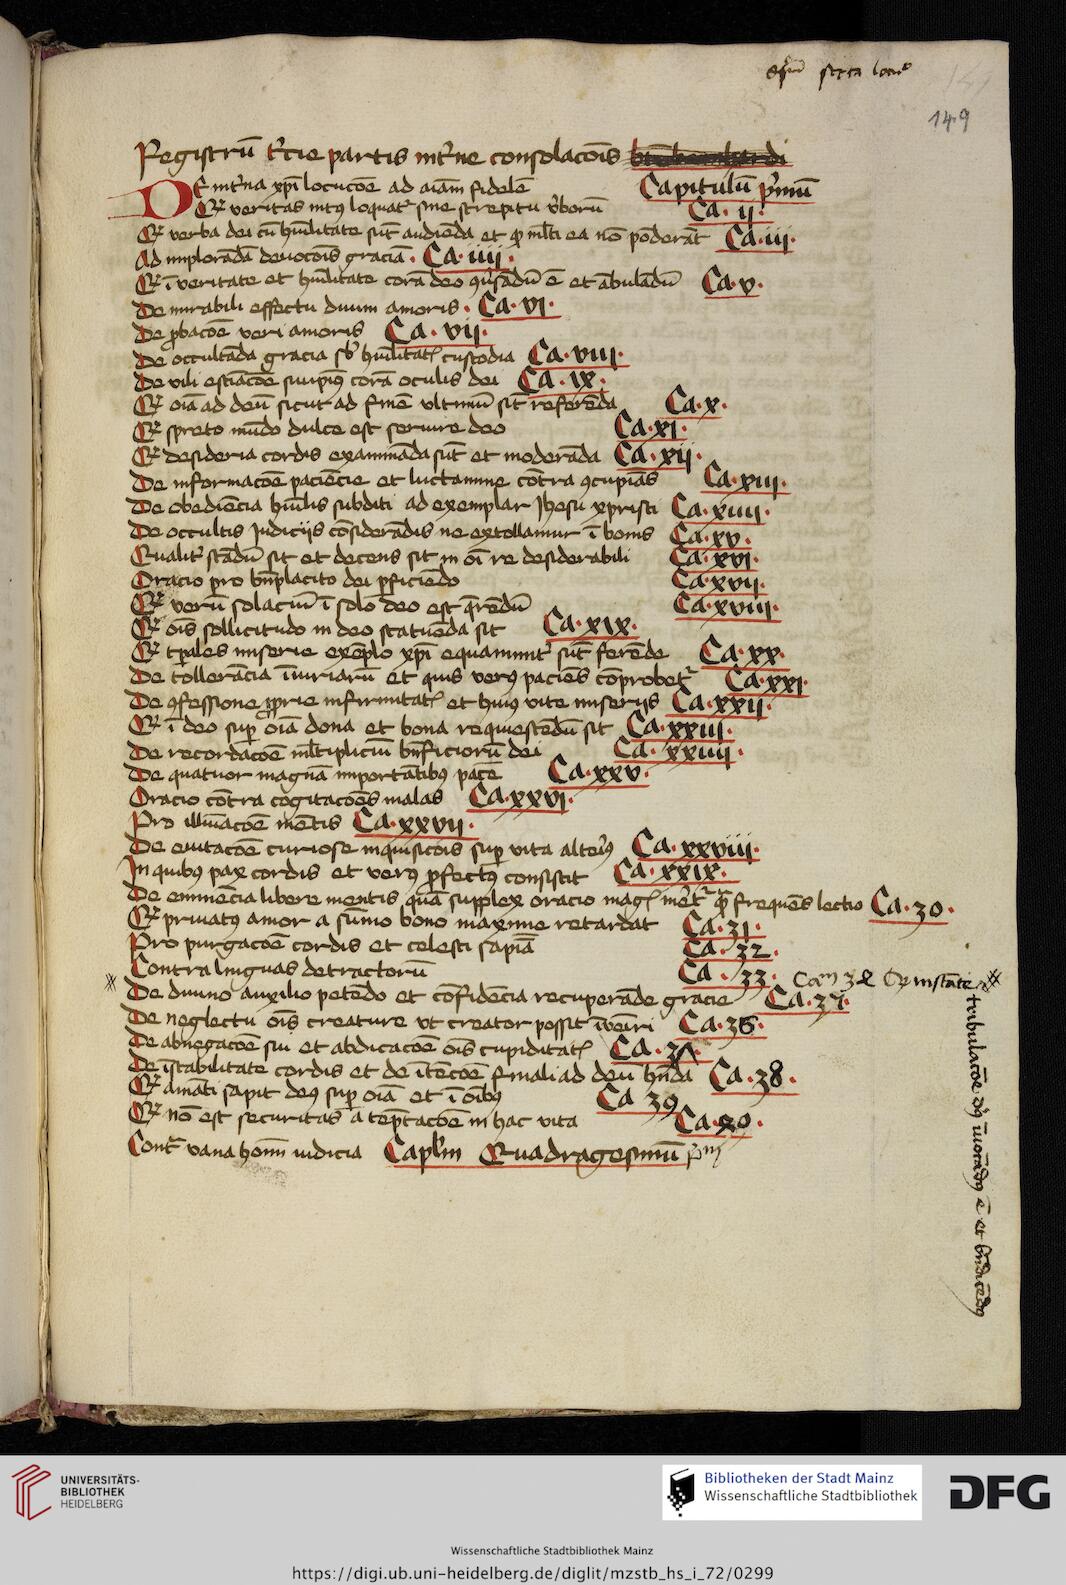 149
Registrū t'cie partis int'ne consolacōis
DE int'na xp̄i locucōe ad aīam fidelē Capitulū p'mū
Qꝛ veritas intꝰ loquatꝛ sine strepitu v'borū Ca. ij.
Qꝛ verba dei cū hūilitate sūt audiēda et ꝙ ml'ti ea nō pōderāt Ca. iij.
Ad implorādā deuocōis graciā. Ca. iiij.
Qꝛ ī veritate et hūilitate corā deo ꝯuersādū ē et ābulādū Ca. v.
De mirabili effectu diuini amoris. Ca. vi.
De ꝓbacōe veri amoris Ca. vij.
De occultāda gracia sb' hūilitatꝭ custodia Ca. viij.
De vili estiacōe suiip̄iꝰ corā oculis dei Ca. ix.
Qꝛ oīa ad deū sicut ad finē vltimū sūt referēda Ca. x.
Qꝛ spreto mūdo dulce est seruire deo Ca. xi.
Qꝛ desideria cordis examināda sūt et moderāda Ca. xij.
De informacōe paciēcie et luctamine cōtra ꝯcupiās Ca. xiij.
De obediēcia hūilis subditi ad exemplar Jhesu xpristi Ca. xiiij.
De occultis Judicijs cōsiderādis ne extollamur ī bonis Ca. xv.
Qualit' stādū sit et decens sit in oī re desiderabili Ca. xvi.
Oracio pro bn̄placito dei ꝑficiēdo Ca. xvij.
Qꝛ verū solaciū ī solo deo est q̄rēdū Ca. xviij.
Qꝛ oīs sollicitudo in deo statuēda sit Ca. xix.
Qꝛ tp̄ales miserie exēplo xp̄i equanimit' sūt ferēde Ca. xx.
De tollerācia iniuriarū et quis verꝰ paciēs cōprobetꝛ Ca. xxi.
De ꝯfessione ꝓprie infirmitatꝭ et huiꝰ vite miserijs Ca. xxij.
Qꝛ ī deo suꝑ oīa dona et bona requiescēdū sit Ca. xxiij.
De recordacōe ml'tipliciū bn̄ficiorū dei Ca. xxiiij.
De quatuor magnā importātibꝰ pacē Ca. xxv.
Oracio cōtra cogitacōes malas Ca. xxvi.
Pro illūiacōe mētis Ca. xxvij.
De euitacōe curiose inquisicōis suꝑ vita alteriꝰ Ca. xxviij.
In quibꝰ pax cordis et verꝰ ꝓfectꝰ consistit Ca. xxix.
De eminēcia libere mentis quā supplex oracio magꝭ meretꝛ q̄ frequēs lectio Ca. 30.
Qꝛ priuatꝰ amor a sūmo bono maxime retardat Ca. 31.
Pro purgacōe cordis et celesti sapiā Ca. 32.
Contra linguas detractorū Ca. 33.
Ca^m 34 Qꝛ instāte
tribulacōe dꝰ īuocādꝰ ē et bn̄dicēdꝰ
De diuino auxilio petēdo et cōfidēcia recuperāde gracie Ca. 35.
De neglectu oīs creature vt creator possit īueīri Ca. 36.
De abnegacōe sui et abdicacōe oīs cupiditatꝭ Ca. 37
De īstabilitate cordis et de ītēcōe finali ad deū hn̄da Ca. 38.
Qꝛ amāti sapit deꝰ suꝑ oīa et ī oībꝰ Ca 39
Qꝛ nō est securitas a tēptacōe in hac vita Ca. 40.
Contꝛ vana hom̄ iudicia Capl'm Quadragesimū p^m
UNIVERSITÄTS-
BIBLIOTHEK
HEIDELBERG
Bibliotheken der Stadt Mainz
Wissenschaftliche Stadtbibliothek
DFG
Wissenschaftliche Stadtbibliothek Mainz
https://digi.ub.uni-heidelberg.de/diglit/mzstb_hs_i_72/0299